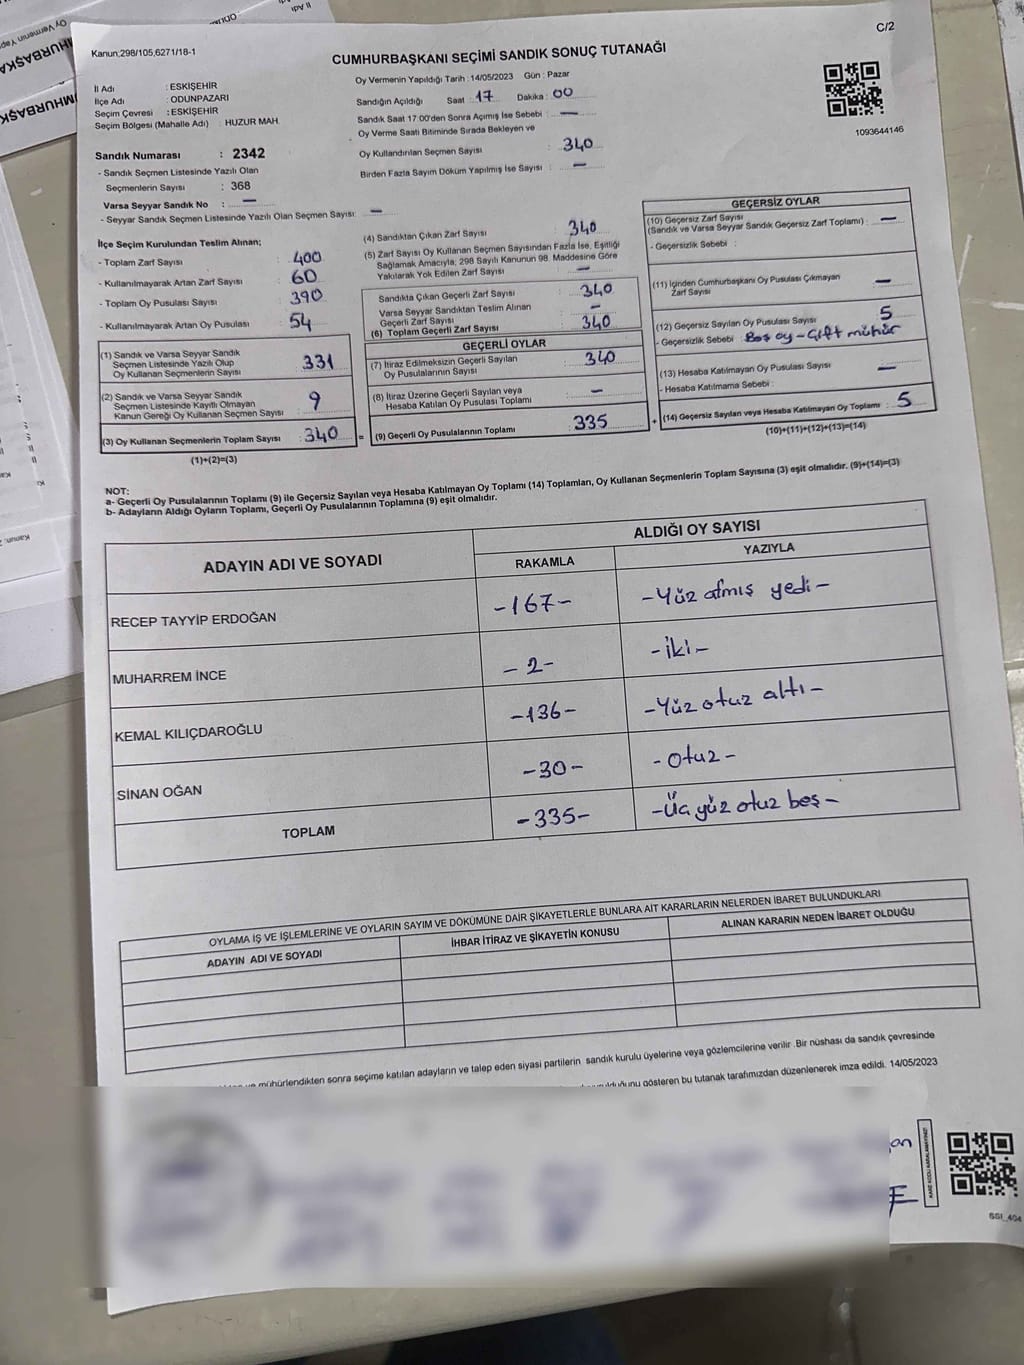 C/2
Kanun:298/105,6271/18-1
CUMHURBAŞKANI SEÇİMİ SANDIK SONUÇ TUTANAĞI
İl Adı : ESKİŞEHİR
İlçe Adı : ODUNPAZARI
Seçim Çevresi : ESKİŞEHİR
Seçim Bölgesi (Mahalle Adı) : HUZUR MAH.
Sandık Numarası : 2342
- Sandık Seçmen Listesinde Yazılı Olan
Seçmenlerin Sayısı : 368
Varsa Seyyar Sandık No : —
- Seyyar Sandık Seçmen Listesinde Yazılı Olan Seçmen Sayısı : —
Oy Vermenin Yapıldığı Tarih : 14/05/2023 Gün : Pazar
Sandığın Açıldığı Saat : 17 Dakika : 00
Sandık Saat 17.00'den Sonra Açımış İse Sebebi : —
Oy Verme Saati Bitiminde Sırada Bekleyen ve
Oy Kullandırılan Seçmen Sayısı : 340
Birden Fazla Sayım Döküm Yapılmış İse Sayısı : —
1093644146
İlçe Seçim Kurulundan Teslim Alınan;
- Toplam Zarf Sayısı : 400
- Kullanılmayarak Artan Zarf Sayısı : 60
- Toplam Oy Pusulası Sayısı : 390
- Kullanılmayarak Artan Oy Pusulası : 54
(1) Sandık ve Varsa Seyyar Sandık
Seçmen Listesinde Yazılı Olup
Oy Kullanan Seçmenlerin Sayısı : 331
(2) Sandık ve Varsa Seyyar Sandık
Seçmen Listesinde Kayıtlı Olmayan
Kanun Gereği Oy Kullanan Seçmen Sayısı : 9
(3) Oy Kullanan Seçmenlerin Toplam Sayısı : 340 =
(1)+(2)=(3)
(4) Sandıktan Çıkan Zarf Sayısı : 340
(5) Zarf Sayısı Oy Kullanan Seçmen Sayısından Fazla İse, Eşitliği
Sağlamak Amacıyla; 298 Sayılı Kanunun 98. Maddesine Göre
Yakılarak Yok Edilen Zarf Sayısı : —
Sandıkta Çıkan Geçerli Zarf Sayısı : 340
Varsa Seyyar Sandıktan Teslim Alınan
Geçerli Zarf Sayısı : —
(6) Toplam Geçerli Zarf Sayısı : 340
GEÇERLİ OYLAR
(7) İtiraz Edilmeksizin Geçerli Sayılan
Oy Pusulalarının Sayısı : 340
(8) İtiraz Üzerine Geçerli Sayılan veya
Hesaba Katılan Oy Pusulası Toplamı : —
(9) Geçerli Oy Pusulalarının Toplamı : 335 +
GEÇERSİZ OYLAR
(10) Geçersiz Zarf Sayısı
(Sandık ve Varsa Seyyar Sandık Geçersiz Zarf Toplamı) : —
- Geçersizlik Sebebi :
(11) İçinden Cumhurbaşkanı Oy Pusulası Çıkmayan
Zarf Sayısı : —
(12) Geçersiz Sayılan Oy Pusulası Sayısı : 5
- Geçersizlik Sebebi : Boş oy - Çift mühür
(13) Hesaba Katılmayan Oy Pusulası Sayısı : —
- Hesaba Katılmama Sebebi :
(14) Geçersiz Sayılan veya Hesaba Katılmayan Oy Toplamı : 5
(10)+(11)+(12)+(13)=(14)
NOT:
a- Geçerli Oy Pusulalarının Toplamı (9) ile Geçersiz Sayılan veya Hesaba Katılmayan Oy Toplamı (14) Toplamları, Oy Kullanan Seçmenlerin Toplam Sayısına (3) eşit olmalıdır. (9)+(14)=(3)
b- Adayların Aldığı Oyların Toplamı, Geçerli Oy Pusulalarının Toplamına (9) eşit olmalıdır.
ADAYIN ADI VE SOYADI
ALDIĞI OY SAYISI
RAKAMLA YAZIYLA
RECEP TAYYİP ERDOĞAN -167- -Yüz atmış yedi-
MUHARREM İNCE -2- -iki-
KEMAL KILIÇDAROĞLU -136- -Yüz otuz altı-
SİNAN OĞAN -30- -otuz-
TOPLAM -335- -Üç yüz otuz beş-
OYLAMA İŞ VE İŞLEMLERİNE VE OYLARIN SAYIM VE DÖKÜMÜNE DAİR ŞİKAYETLERLE BUNLARA AİT KARARLARIN NELERDEN İBARET BULUNDUKLARI
ADAYIN ADI VE SOYADI İHBAR İTİRAZ VE ŞİKAYETİN KONUSU ALINAN KARARIN NEDEN İBARET OLDUĞU
mühürlendikten sonra seçime katılan adayların ve talep eden siyasi partilerin sandık kurulu üyelerine veya gözlemcilerine verilir. Bir nüshası da sandık çevresinde
gösteren bu tutanak tarafımızdan düzenlenerek imza edildi. 14/05/2023
KARE KODU KARALAMAYINIZ!
SSI_404